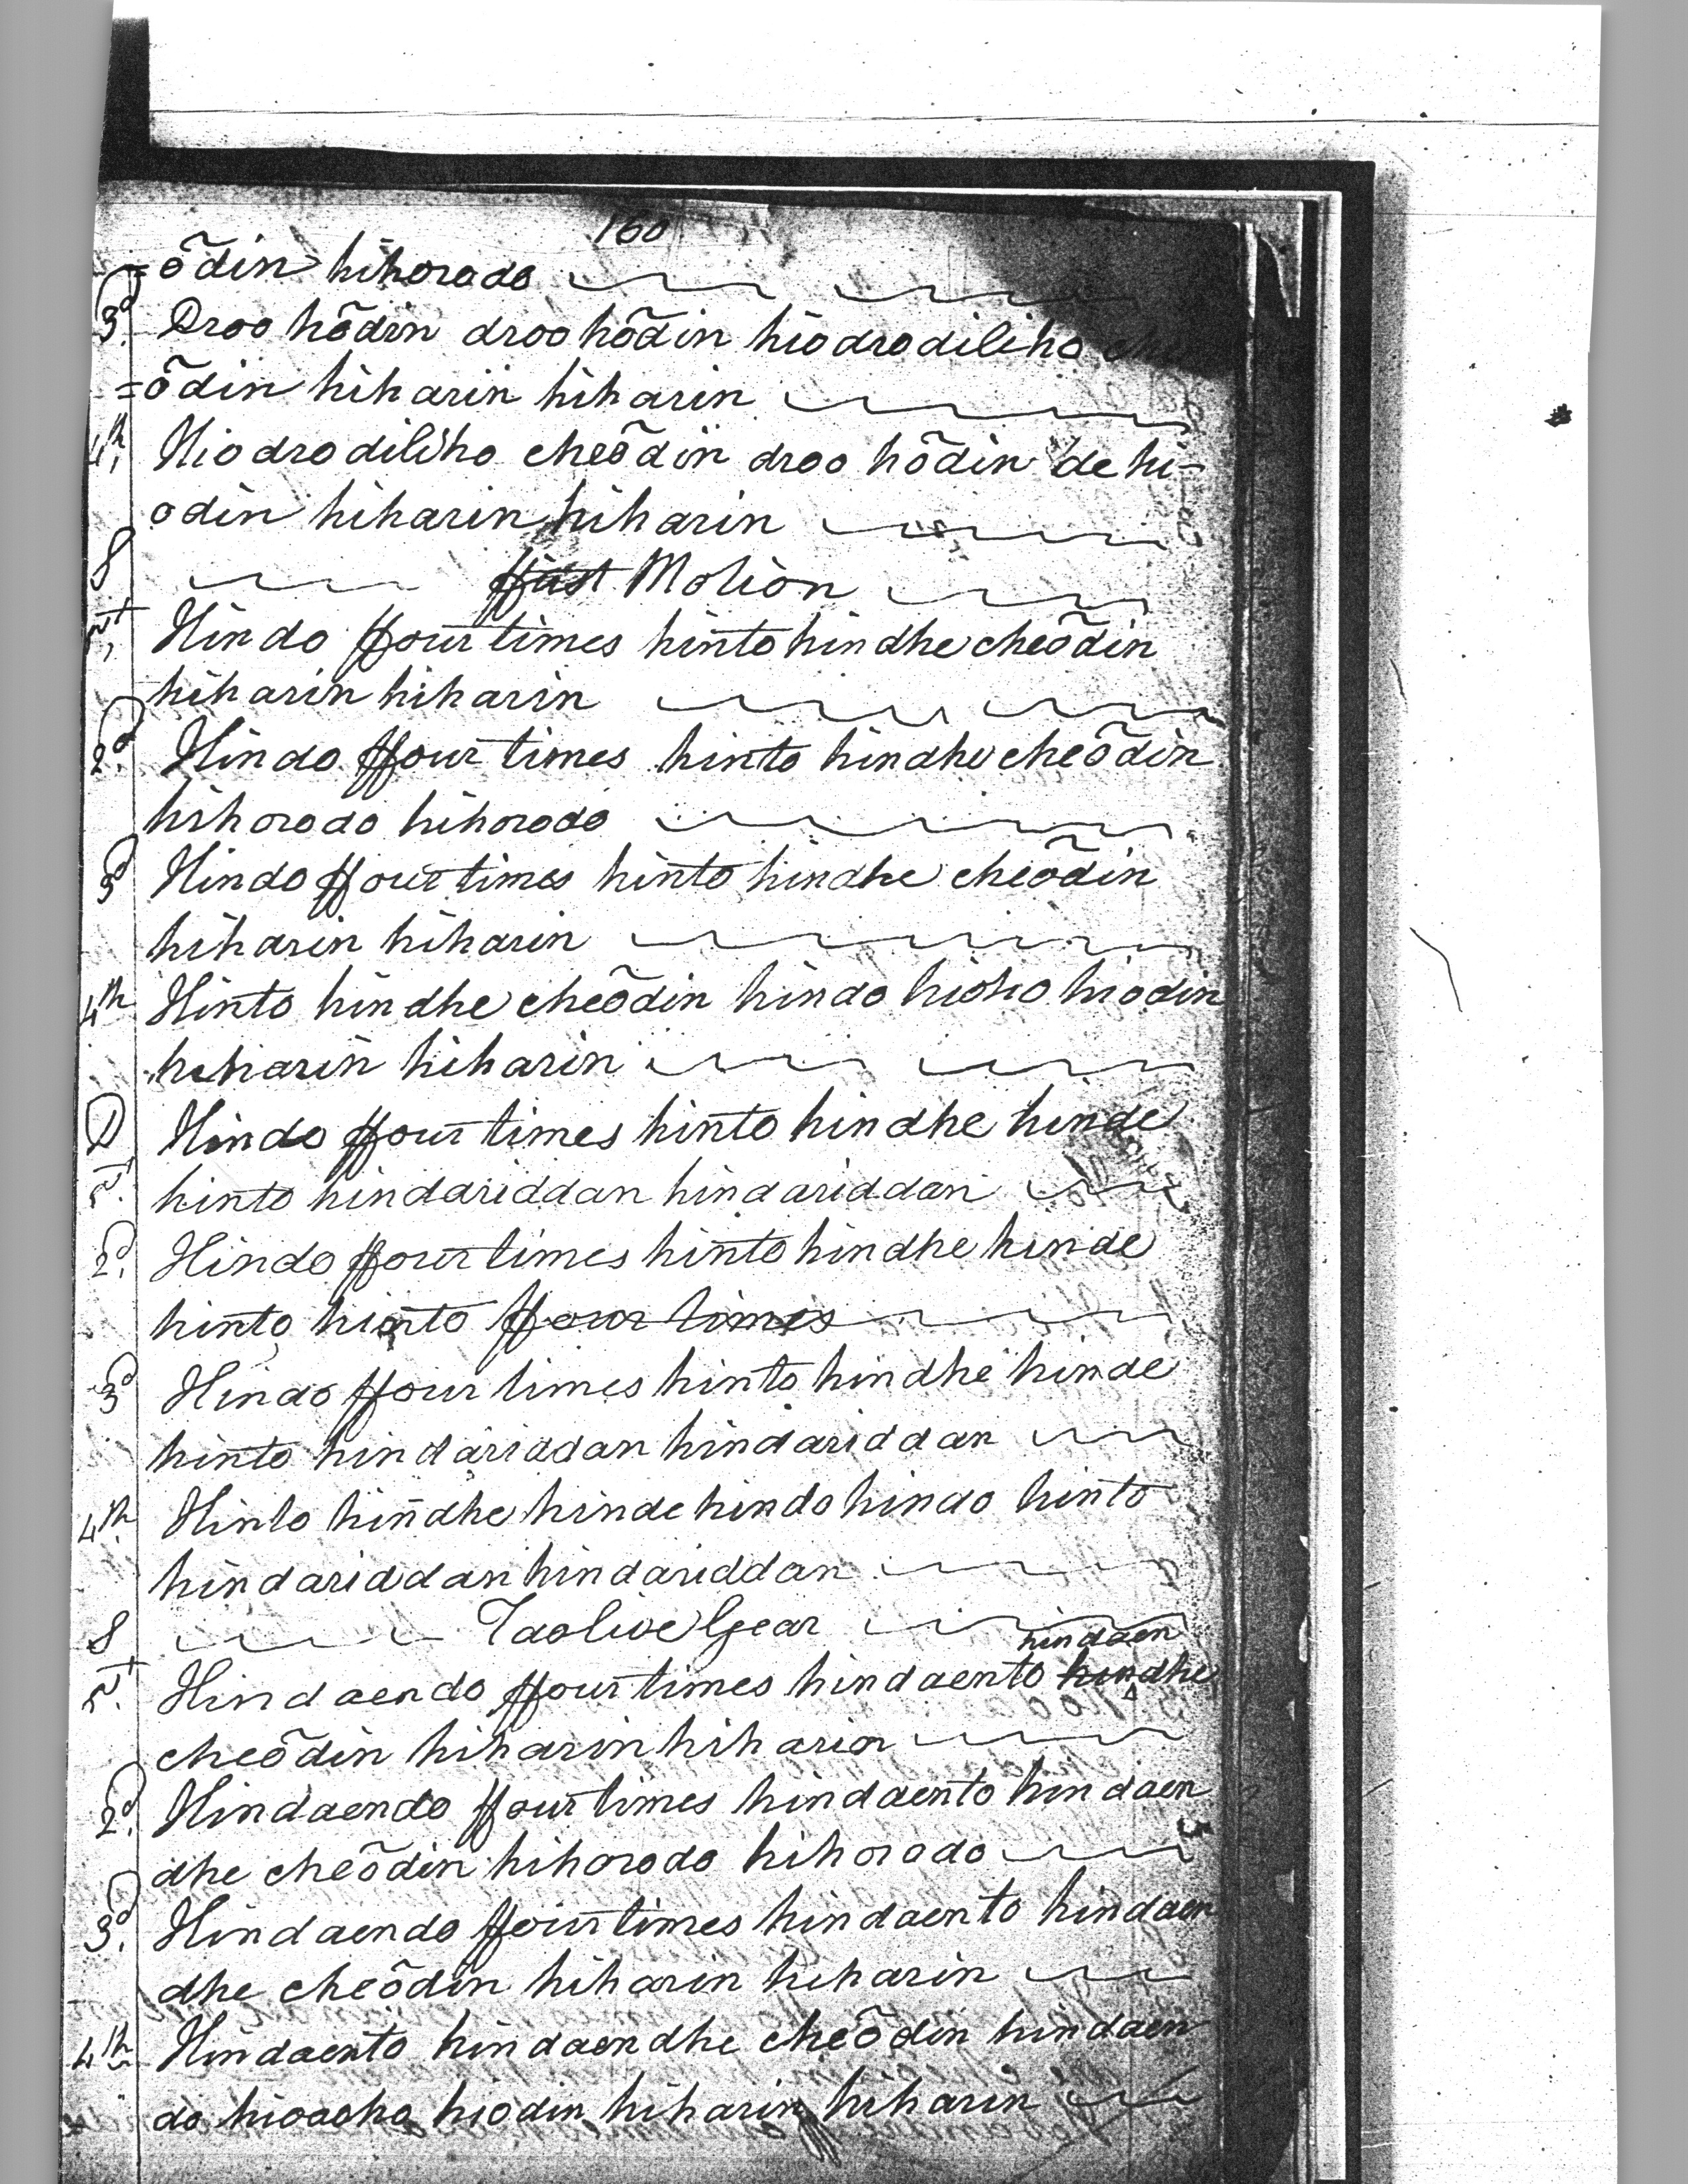 160
=õdin hihorodo
3d. Droo hõdin droo hõdin hiodrodiliho
=õdin hiharin hiharin
4th, Hiodrodiliho cheõdin droo hõdin de hi-
odin hiharin hiharin
S ffirst Motion
1st, Hindo ffour times hinto hindhe cheõdin
hiharin hiharin
2d. Hindo ffour times hinto hindhe cheõdin
hihorodo hihorodo
3d Hindo ffour times hinto hindhe cheõdin
hiharin hiharin
4th Hinto hindhe cheõdin hindo hioho hiodin
hiharin hiharin
D Hindo ffour times hinto hindhe hinde
1st. hinto hindariddan hindariddan
2d. Hindo ffour times hinto hindhe hinde
hinto hinto ffour times
3d Hindo ffour times hinto hindhe hinde
hinto hindariddan hindariddan
4th. Hinto hindhe hinde hindo hindo hinto
hindariddan hindariddan
S Taolive Gear
hindaen
1st. Hindaendo ffour times hindaento hindhe
cheõdin hiharin hiharin
2d. Hindaendo ffour times hindaento hindaen
dhe cheõdin hihorodo hihorodo
3d. Hindaendo ffour times hindaento hindaen
dhe cheõdin hiharin hiharin
4th Hindaento hindaendhe cheõdin hindaen
do hiodin hiharin hiharin